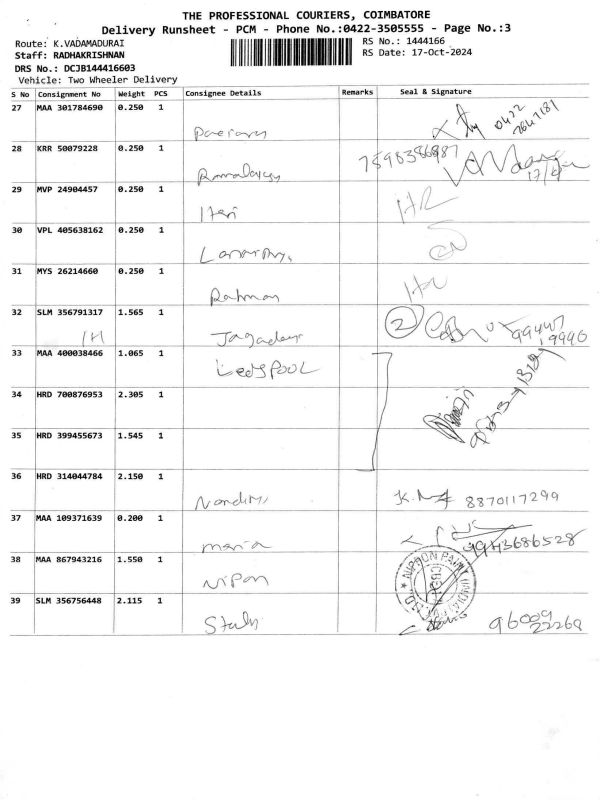 THE PROFESSIONAL COURIERS, COIMBATORE
Delivery Runsheet - PCM - Phone No.:0422-3505555 - Page No.:3
Route: K.VADAMADURAI
RS No.: 1444166
Staff: RADHAKRISHNAN
RS Date: 17-Oct-2024
DRS No.: DCJB144416603
Vehicle: Two Wheeler Delivery
S No Consignment No Weight PCS Consignee Details Remarks Seal & Signature
27 MAA 301784690 0.250 1
0422
28 KRR 50079228 0.250 1
29 MVP 24904457 0.250 1
Hari
30 VPL 405638162 0.250 1
31 MYS 26214660 0.250 1
Rahman
32 SLM 356791317 1.565 1
2
33 MAA 400038466 1.065 1
34 HRD 700876953 2.305 1
35 HRD 399455673 1.545 1
36 HRD 314044784 2.150 1
8870117299
37 MAA 109371639 0.200 1
maria
9943686528
38 MAA 867943216 1.550 1
Nipon
NIPPON PAINT (INDIA)
39 SLM 356756448 2.115 1
96009
22268